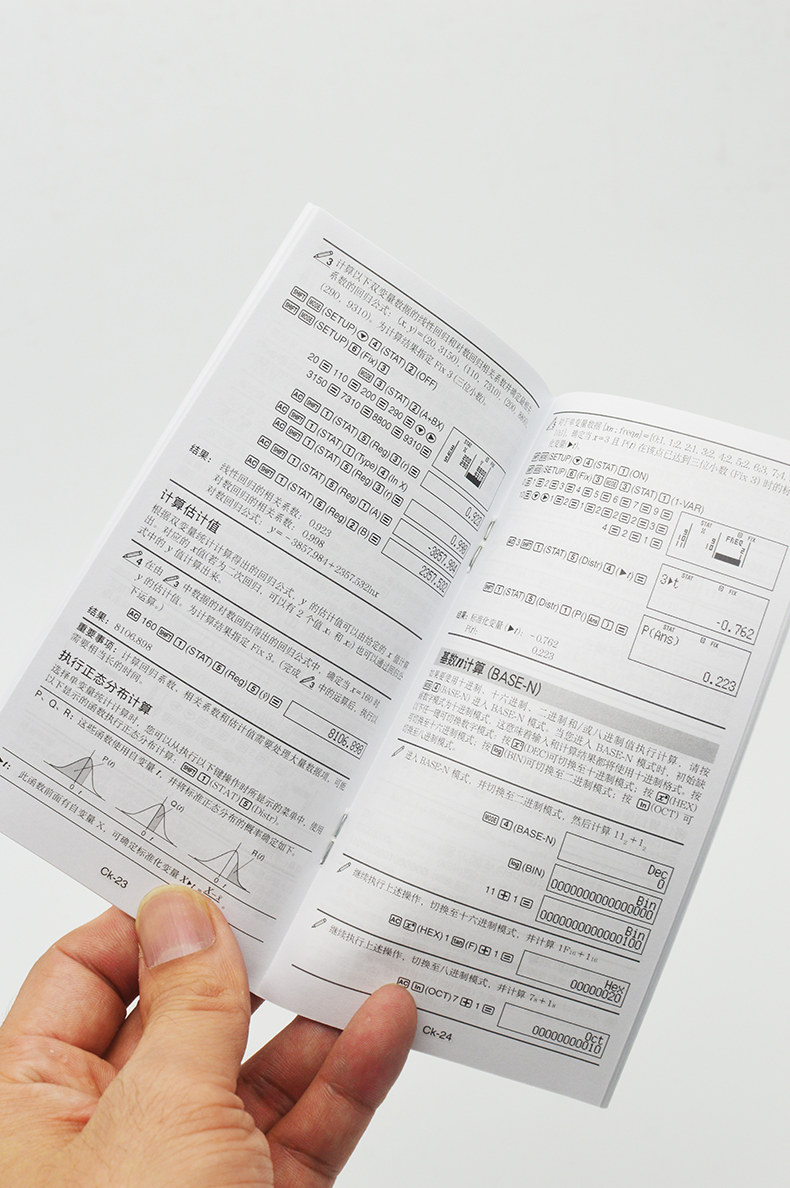 3 计算以下双变量数据的线性回归和对数回归相关系数并确定最强相关
系数的回归公式:(x, y)=(20, 3150), (110, 7310), (200, 8800),
(290, 9310)。为计算结果指定 Fix 3 (三位小数)。
SHIFT MODE (SETUP) ▼ 4 (STAT) 2 (OFF)
SHIFT MODE (SETUP) 6 (Fix) 3
MODE 3 (STAT) 2 (A+BX)
20 = 110 = 200 = 290 = ▼ ▶
3150 = 7310 = 8800 = 9310 =
AC SHIFT 1 (STAT) 5 (Reg) 3 (r) =
AC SHIFT 1 (STAT) 1 (Type) 4 (ln X)
AC SHIFT 1 (STAT) 5 (Reg) 3 (r) =
AC SHIFT 1 (STAT) 5 (Reg) 1 (A) =
AC SHIFT 1 (STAT) 5 (Reg) 2 (B) =
0.923
0.998
-3857.984
2357.532
结果: 线性回归的相关系数: 0.923
对数回归的相关系数: 0.998
对数回归公式: y = –3857.984 + 2357.532lnx
计算估计值
根据双变量统计计算得出的回归公式, y 的估计值可以由给定的 x 值计算
出。对应的 x值(若为二次回归,可以有 2 个值 x₁ 和 x₂)也可以通过回归公
式中的 y 值计算出来。
4 在由 3 中数据的对数回归得出的回归公式中,确定当 x=160 时
y 的估计值。为计算结果指定 Fix 3。(完成 3 中的运算后,执行以
下运算。)
AC 160 SHIFT 1 (STAT) 5 (Reg) 5 (ŷ) =
8106.898
结果: 8106.898
重要事项: 计算回归系数、相关系数和估计值需要处理大量数据项,可能
需要相当长的时间。
执行正态分布计算
选择单变量统计计算时,您可以从执行以下键操作时所显示的菜单中,使用
以下显示的函数执行正态分布计算: SHIFT 1 (STAT) 5 (Distr)。
P、Q、R: 这些函数使用自变量 t,并将标准正态分布的概率确定如下。
P(t)
Q(t)
R(t)
0 t
0 t
0 t
▶t: 此函数前面有自变量 X,可确定标准化变量
Ck-23
SHIFT MODE (SETUP) ▼ 4 (STAT) 1 (ON)
SHIFT MODE (SETUP) 6 (Fix) 3 MODE 3 (STAT) 1 (1-VAR)
4 = 2 = 1 =
STAT FIX
FREQ
AC 3 SHIFT 1 (STAT) 5 (Distr) 4 (▶t) =
3▶t
-0.762
SHIFT 1 (STAT) 5 (Distr) 1 (P() Ans ) =
P(Ans)
0.223
结果: 标准化变量 (▶t): –0.762
P(t): 0.223
基数n计算 (BASE-N)
如果要使用十进制、十六进制、二进制和/或八进制值执行计算,请按
MODE 4 (BASE-N) 进入 BASE-N 模式。当您进入 BASE-N 模式时,初始缺
省数字模式为十进制模式,这意味着输入和计算结果都将使用十进制格式。按
以下任一键可切换数字模式: 按 x² (DEC)可切换至十进制模式;按 x^ (HEX)
可切换至十六进制模式;按 log (BIN)可切换至二进制模式;按 ln (OCT) 可
切换至八进制模式。
进入BASE-N 模式,并切换至二进制模式,然后计算 11₂ + 1₂
MODE 4 (BASE-N)
Dec
0
log (BIN)
Bin
0000000000000000
11 + 1 =
Bin
0000000000000100
继续执行上述操作,切换至十六进制模式,并计算 1F₁₆ + 1₁₆
AC x^ (HEX) 1 tan (F) + 1 =
Hex
00000020
继续执行上述操作,切换至八进制模式,并计算 7₈ + 1₈
AC ln (OCT) 7 + 1 =
Oct
00000000010
Ck-24